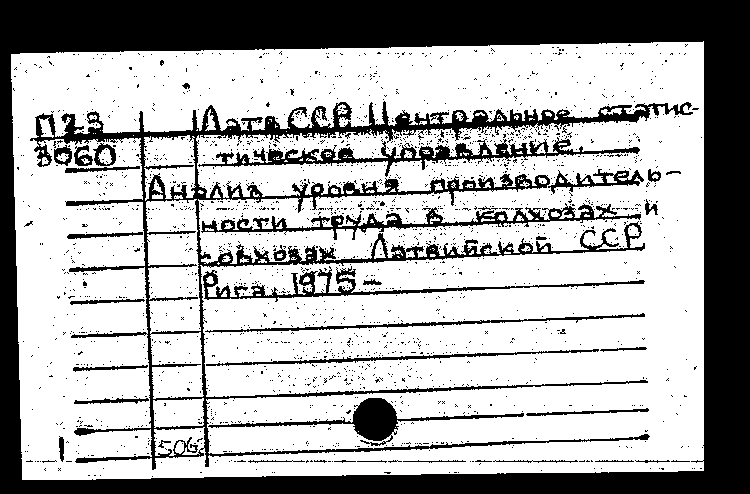 П23 Латв ССР Центральное статис-
3060 тическое управление.
Анализ уровня производитель-
ности труда в колхозах и
совхозах Латвийской ССР
Рига, 1975 –
506